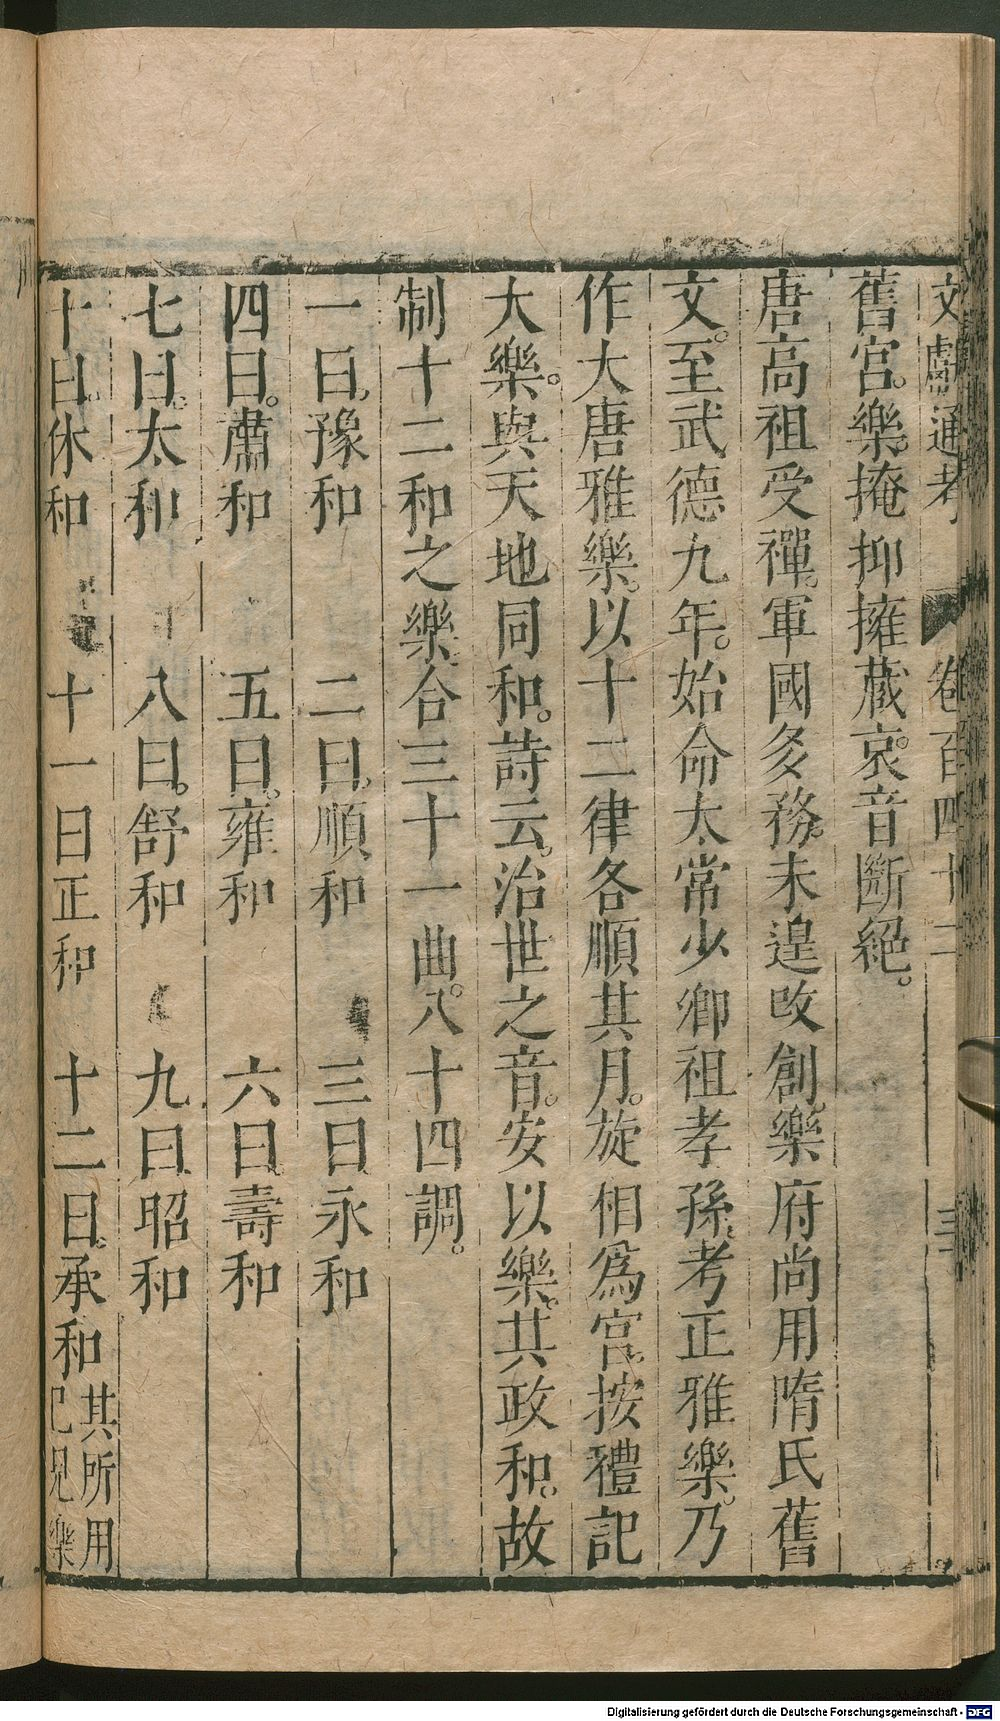 文獻通考 卷百四十二 三
舊宮。樂。掩抑擁蔵。哀音斷絕。
唐高祖受禪。軍國多務。未遑改創。樂府尚用隋氏舊
文。至武德九年。始命太常少卿祖孝孫。考正雅樂。乃
作大唐雅樂。以十二律各順其月。旋相爲宮。按禮記
大樂。與天地同和。詩云。治世之音。安以樂。其政和。故
制十二和之樂。合三十一曲。八十四調。
一曰。豫和 二曰。順和 三曰永和
四曰。肅和 五曰。雍和 六曰壽和
七曰。太和 八曰。舒和 九曰昭和
十曰。休和 十一曰正和 十二曰。承和 其所用
已見樂
Digitalisierung gefördert durch die Deutsche Forschungsgemeinschaft - DFG